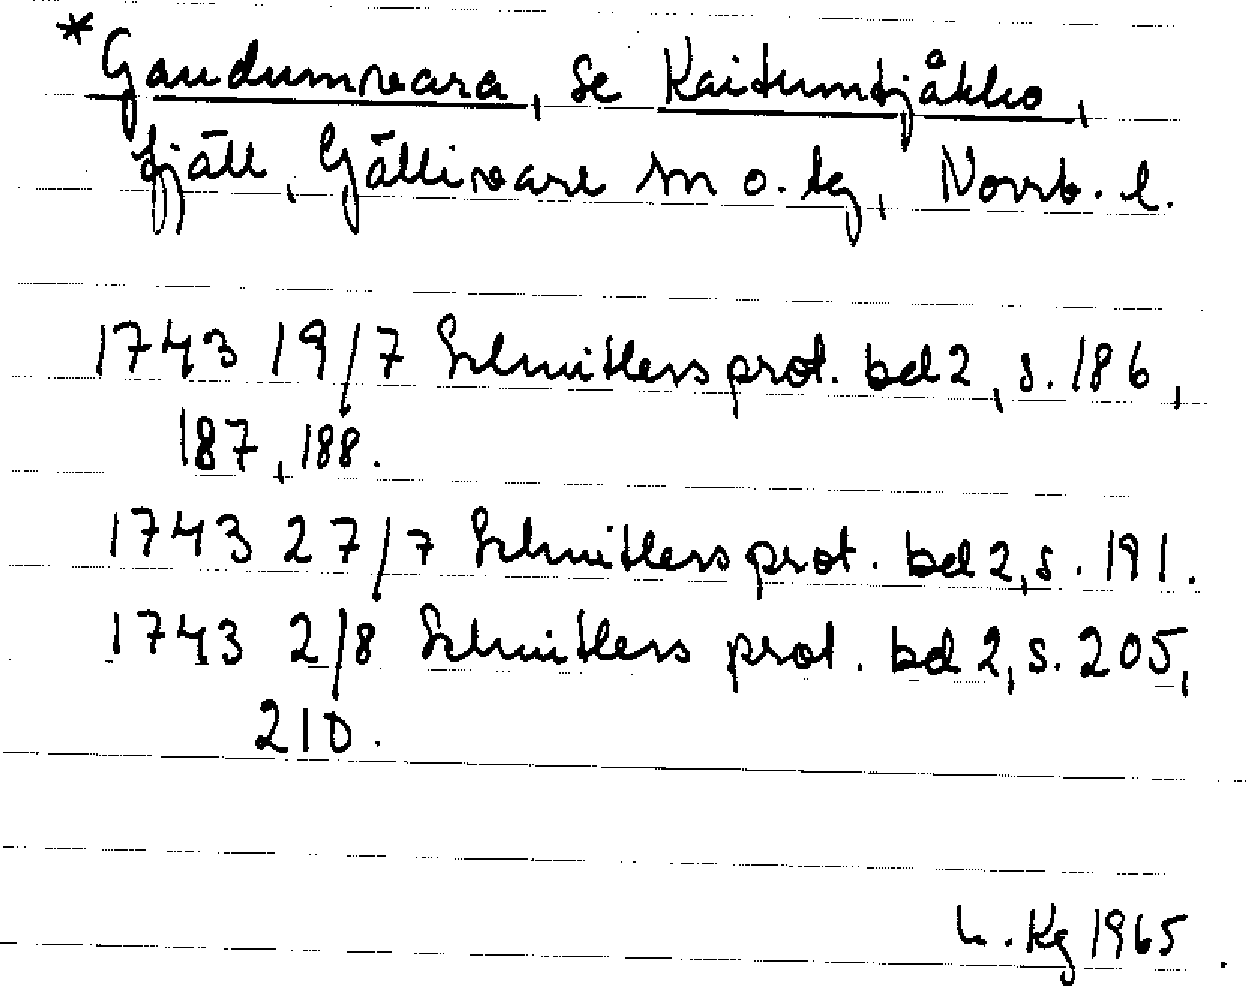 *Gaudumvara, se Kaitumtjåkko,
fjäll, Gällivare sn o. tg, Norrb. l.
1743 19/7 Schnitlers prot. bd 2, s. 186,
187, 188.
1743 27/7 Schnitlers prot. bd 2, s. 191.
1743 2/8 Schnitlers prot. bd 2, s. 205,
210.
Kg 1965